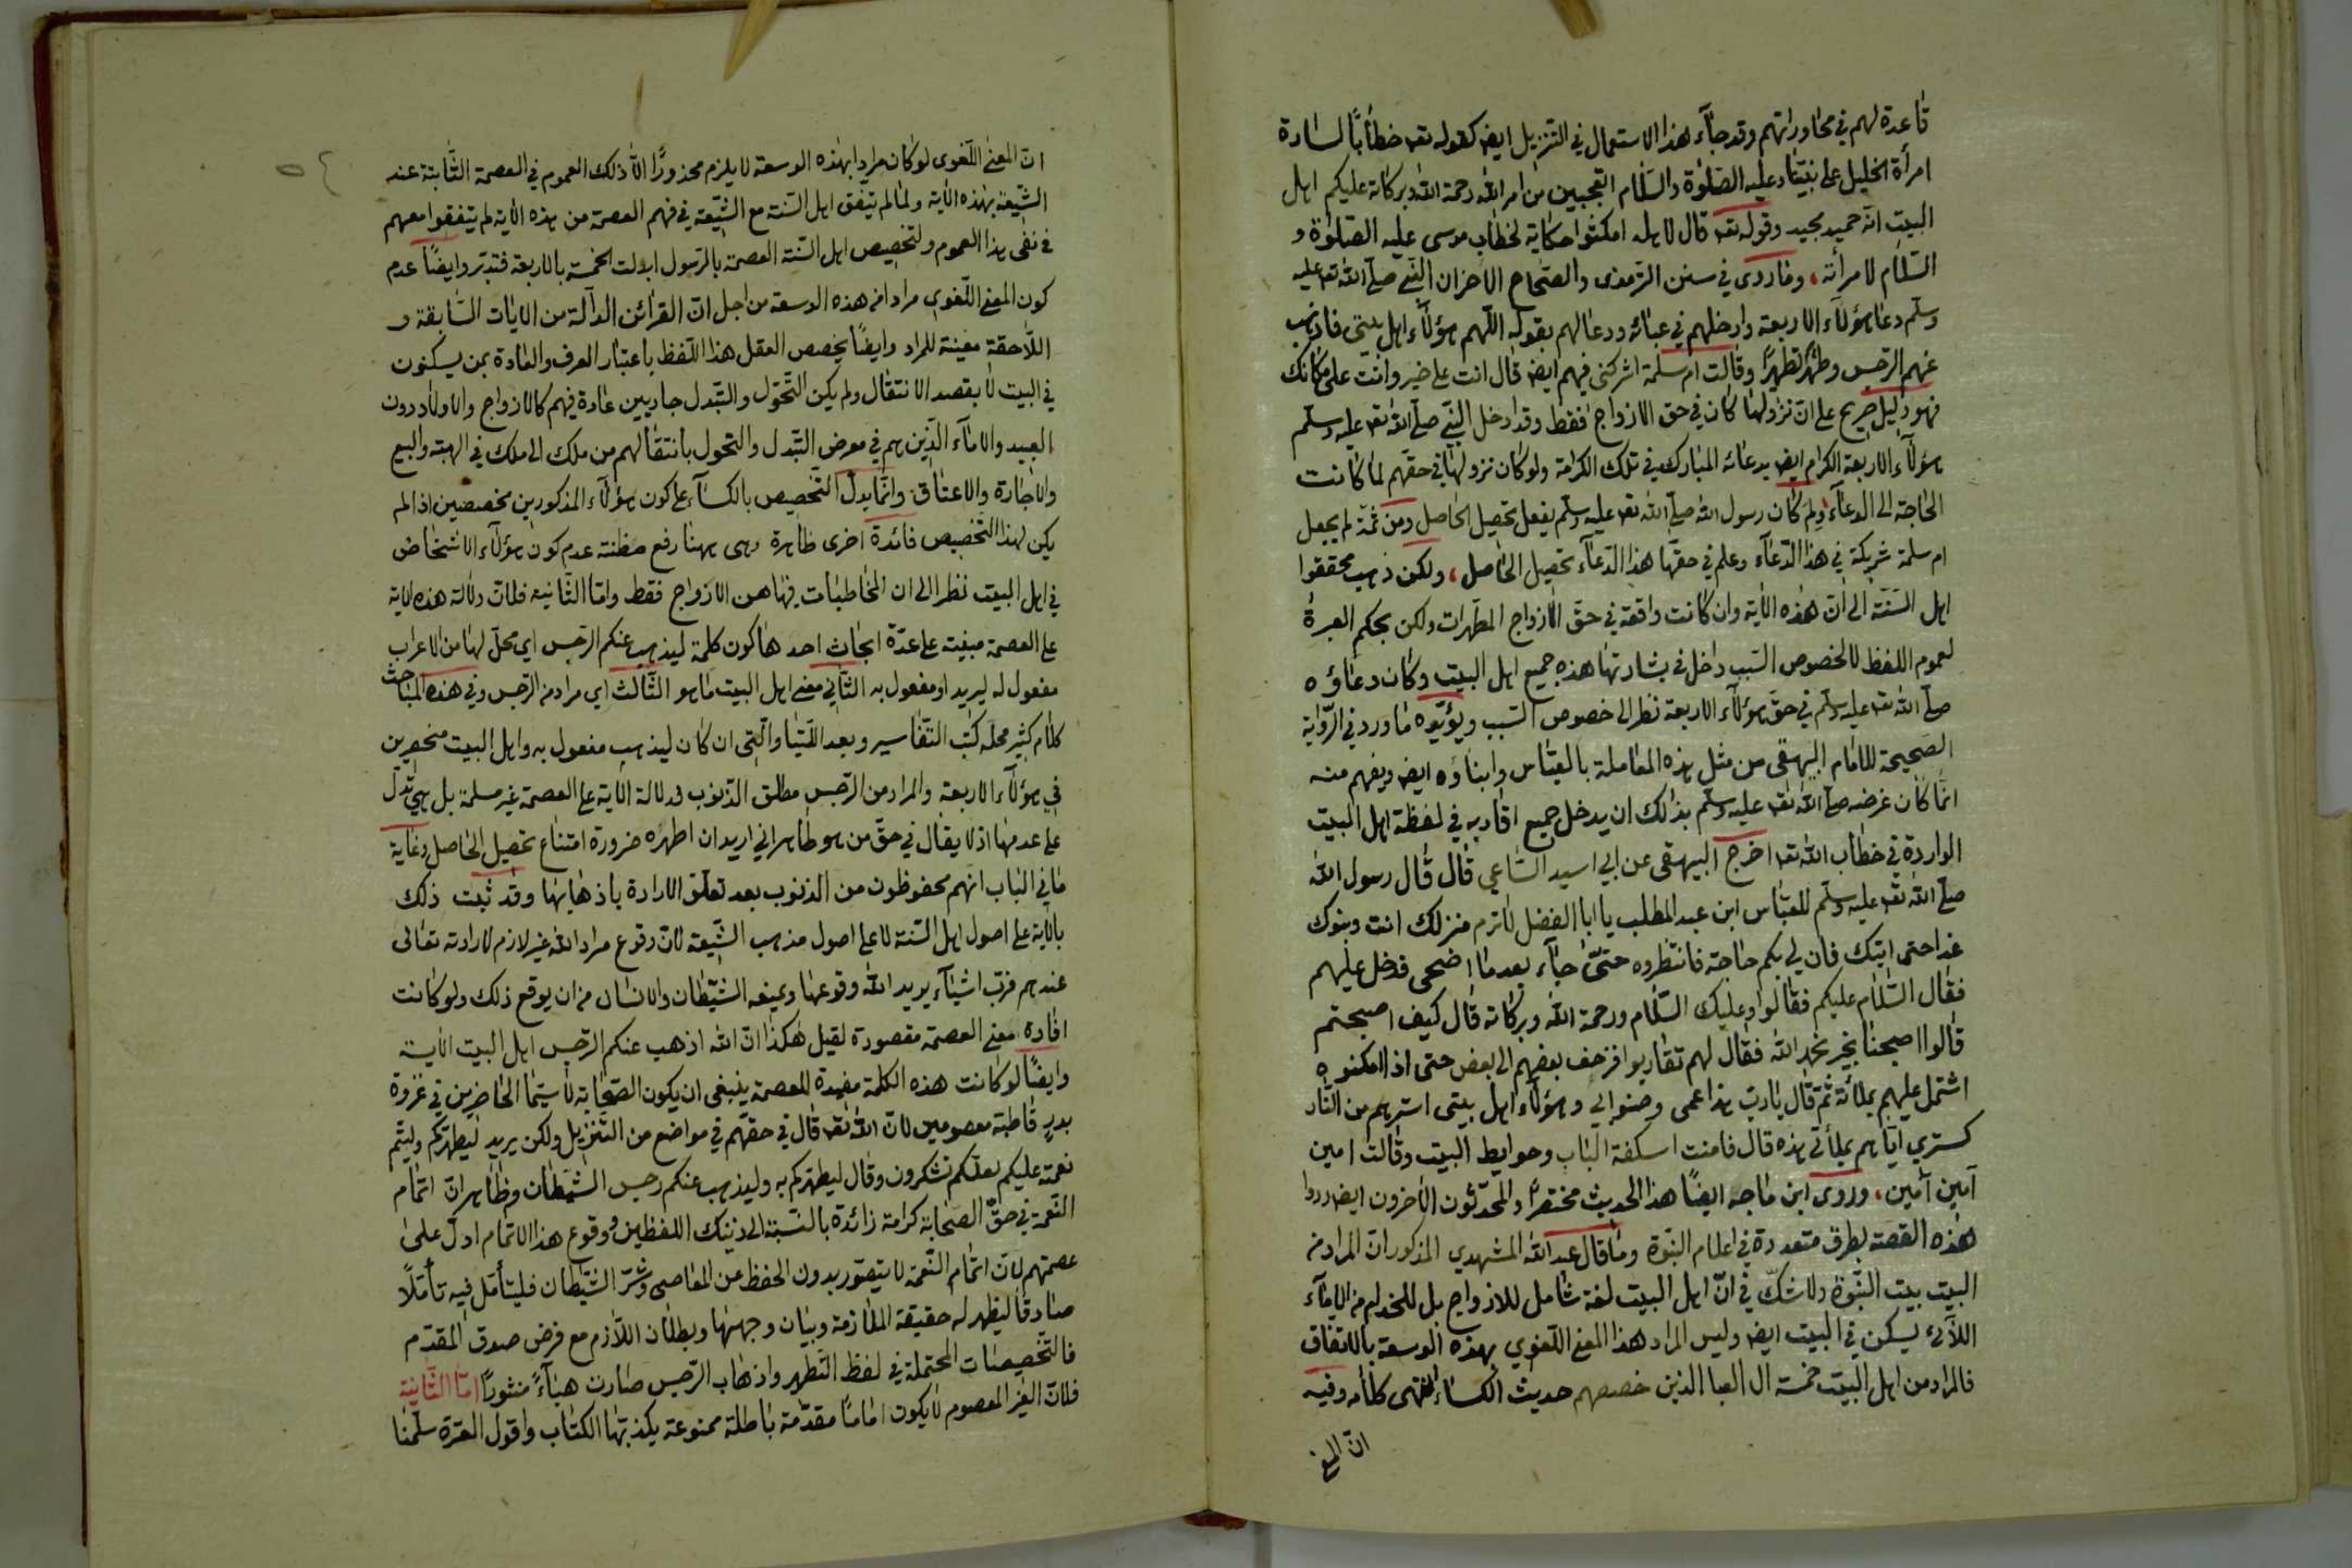 قاعدة لهم في محاوراتهم وقد جآء هذا الاستعمال في التنزيل ايض كقوله تعـ خطاباً لسارة
امرأة الخليل على نبينا وعليه الصلوة والسلام اتعجبين من امر الله رحمة الله وبركاته عليكم اهل
البيت انه حميد مجيد وقوله تعـ قال لاهله امكثوا حكاية لخطاب موسى عليه الصلوة و
السلام لامرأته، وما روى في سنن الترمذي والصحاح الاخر ان النبي صلى الله تعـ عليه
وسلم دعا هؤلآء الاربعة وادخلهم في عبائه ودعا لهم بقوله اللهم هؤلآء اهل بيتي فاذهب
عنهم الرجس وطهرهم تطهيرا وقالت ام سلمة اشركني فيهم ايض قال انت على خير وانت على مكانك
فهو دليل صريح على ان نزولها كان في حق الازواج فقط وقد ادخل النبي صلى الله تعـ عليه وسلم
هؤلآء الاربعة الكرام ايض بدعائه المبارك في تلك الكرامة ولو كان نزولها في حقهم لما كانت
الحاجة الى الدعآء ولم كان رسول الله صلى الله تعـ عليه وسلم يفعل تحصيل الحاصل ومن ثمة لم يجعل
ام سلمة شريكة في هذا الدعآء وعلم في حقها هذا الدعآء تحصيل الحاصل، ولكن ذهب محققوا
اهل السنة الى ان هذه الاية وان كانت واقعة في حق الازواج المطهرات ولكن بحكم العبرة
لعموم اللفظ لا لخصوص السبب داخل في بشارتها هذه جميع اهل البيت وكان دعاؤه
صلى الله تعـ عليه وسلم في حق هؤلآء الاربعة نظرا الى خصوص السبب ويؤيده ما ورد في الرواية
الصحيحة للامام البيهقي من مثل هذه المعاملة بالعباس وابناؤه ايض ويفهم منه
انما كان غرضه صلى الله تعـ عليه وسلم بذلك ان يدخل جميع اقاربه في لفظة اهل البيت
الواردة في خطاب الله تعـ اخرج البيهقي عن ابي اسيد الساعي قال قال رسول الله
صلى الله تعـ عليه وسلم للعباس ابن عبد المطلب يا ابا الفضل لا ترم منزلك انت وبنوك
غدا حتى اتيتك فان لي بكم حاجة فانتظروه حتى جآء بعدما اضحى فدخل عليهم
فقال السلام عليكم فقالوا وعليك السلام ورحمة الله وبركاته قال كيف اصبحتم
قالوا اصبحنا بخير نحمد الله فقال لهم تقاربوا فزحف بعضهم الى بعض حتى اذا امكنوه
اشتمل عليهم بملائة ثم قال يا رب هذا عمى وصنو ابي وهؤلآء اهل بيتى استرهم من النار
كستري اياهم بملأتي هذه قال فامنت اسكفة الباب وحوايط البيت وقالت امين
آمين آمين، وروى ابن ماجه ايضاً هذا الحديث مختصراً والمحدثون الاخرون ايض رووا
هذه القصة بطرق متعددة في اعلام النبوة وما قال عبد الله المشهدي المذكور ان المراد من
البيت بيت النبوة ولا شك في ان اهل البيت لغة شامل للازواج بل للخدام من الامآء
اللآئي يسكن في البيت ايض وليس المراد هذا المعنى اللغوي بهذه الوسعة بالاتفاق
فالمراد من اهل البيت خمسة ال العبا الذين خصصهم حديث الكساء انتهى كلامه وفيه
ان المعنى
ان المعنى اللغوى لو كان مرادا بهذه الوسعة لا يلزم محذوراً الا ذلك العموم في العصمة الثابتة عند
الشيعة بهذه الاية ولما لم يتفق اهل السنة مع الشيعة في فهم العصمة من هذه الاية لم يتفقوا معهم
في نفى هذا العموم ولتخصيص اهل السنة العصمة بالرسول ابدلت الخمسة بالاربعة فتدبر وايضاً عدم
كون المعنى اللغوي مرادا من هذه الوسعة من اجل ان القرائن الدالة من الايات السابقة و
اللاحقة معينة للمراد وايضاً يخصص العقل هذا اللفظ باعتبار العرف والعادة بمن يسكنون
في البيت لا بقصد الانتقال ولم يكن التحول والتبدل جاريين عادة فيهم كالازواج والاولاد دون
العبيد والامآء الذين هم في معرض التبدل والتحول بانتقالهم من ملك الى ملك في الهبة والبيع
والاجارة والاعتاق وانما يدل التخصيص بالكسآء على كون هؤلآء المذكورين مخصصين اذا لم
يكن لهذا التخصيص فائدة اخرى ظاهرة وهى ههنا رفع مظنة عدم كون هؤلآء الاشخاص
في اهل البيت نظرا الى ان المخاطبات فيها هن الازواج فقط واما الثانية فلان دلالة هذه الاية
على العصمة مبنية على عدة ابحاث احدها كون كلمة ليذهب عنكم الرجس اي محل لها من الاعراب
مفعول له ليريد او مفعول به الثاني معنى اهل البيت ما هو الثالث اي مراد من الرجس وفي هذه المباحث
كلام كثير محله كتب التفاسير وبعد اللتيا والتى ان كان ليذهب مفعول به واهل البيت منحصرين
في هؤلآء الاربعة والمراد من الرجس مطلق الذنوب فدلالة الاية على العصمة غير مسلمة بل هي تدل
على عدمها اذ لا يقال في حق من هو طاهر اني اريد ان اطهره ضرورة امتناع تحصيل الحاصل وغاية
ما في الباب انهم محفوظون من الذنوب بعد تعلق الارادة باذهابها وقد ثبت ذلك
بالاية على اصول اهل السنة لا على اصول مذهب الشيعة لان وقوع مراد الله غير لازم لارادته تعالى
عندهم فرب اشيآء يريد الله وقوعها ويمنعه الشيطان والانسان من ان يوقع ذلك ولو كانت
افادة معنى العصمة مقصودة لقيل هكذا ان الله اذهب عنكم الرجس اهل البيت الاية
وايضاً لو كانت هذه الكلمة مفيدة للعصمة ينبغى ان يكون الصحابة لا سيما الحاضرين في غزوة
بدر قاطبة معصومين لان الله تعـ قال في حقهم في مواضع من التنزيل ولكن يريد ليطهركم وليتم
نعمته عليكم لعلكم تشكرون وقال ليطهركم به وليذهب عنكم رجس الشيطان وظاهر ان اتمام
النعمة في حق الصحابة كرامة زائدة بالنسبة الى ذينك اللفظين ووقوع هذا الاتمام ادل على
عصمتهم لان اتمام النعمة لا يتصور بدون الحفظ عن المعاصى وشر الشيطان فليتأمل فيه تأملاً
صادقاً ليظهر له حقيقة الملازمة وبيان وجهها وبطلان اللازم مع فرض صدق المقدم
فالتخصيصات المحتملة في لفظ التطهير واذهاب الرجس صارت هبآءً منثوراً اما الثانية
فلان الغير المعصوم لا يكون اماماً مقدمة باطلة ممنوعة يكذبها الكتاب واقول العترة سلمنا